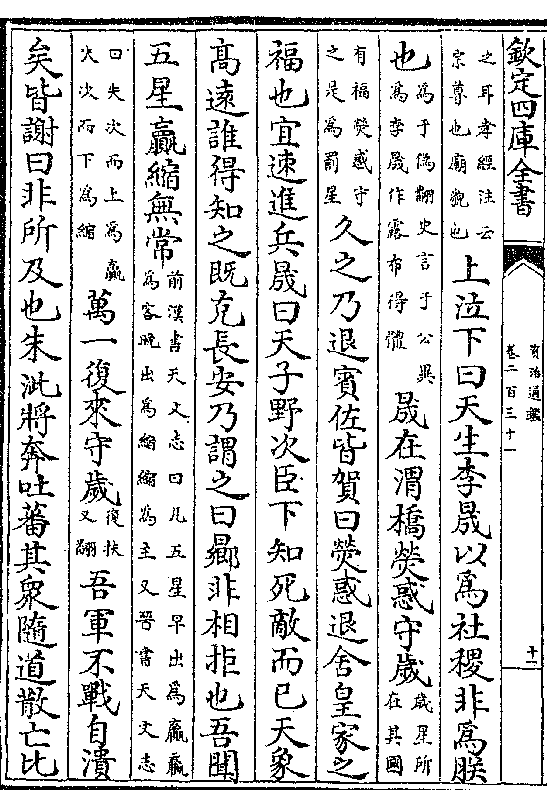 欽定四庫全書
資治通鑑
卷二百三十一
之耳孝經注云
宗尊也廟貌也
上泣下曰天生李晟以爲社稷非爲朕
也
爲于偽翻史言于公異
爲李晟作露布得體
晟在渭橋熒惑守歲
歲星所
在其國
有福熒惑守
之是爲罰星
久之乃退賓佐皆賀曰熒惑退舍皇家之
福也宜速進兵晟曰天子野次臣下知死敵而已天象
高遠誰得知之既克長安乃謂之曰曏非相拒也吾聞
五星贏縮無常
前漢書天文志曰凡五星早出爲贏贏
爲客晚出爲縮縮爲主又晉書天文志
曰失次而上爲贏
失次而下爲縮
萬一復來守歲
復扶
又翻
吾軍不戰自潰
矣皆謝曰非所及也朱泚將奔吐蕃其衆隨道散亡比